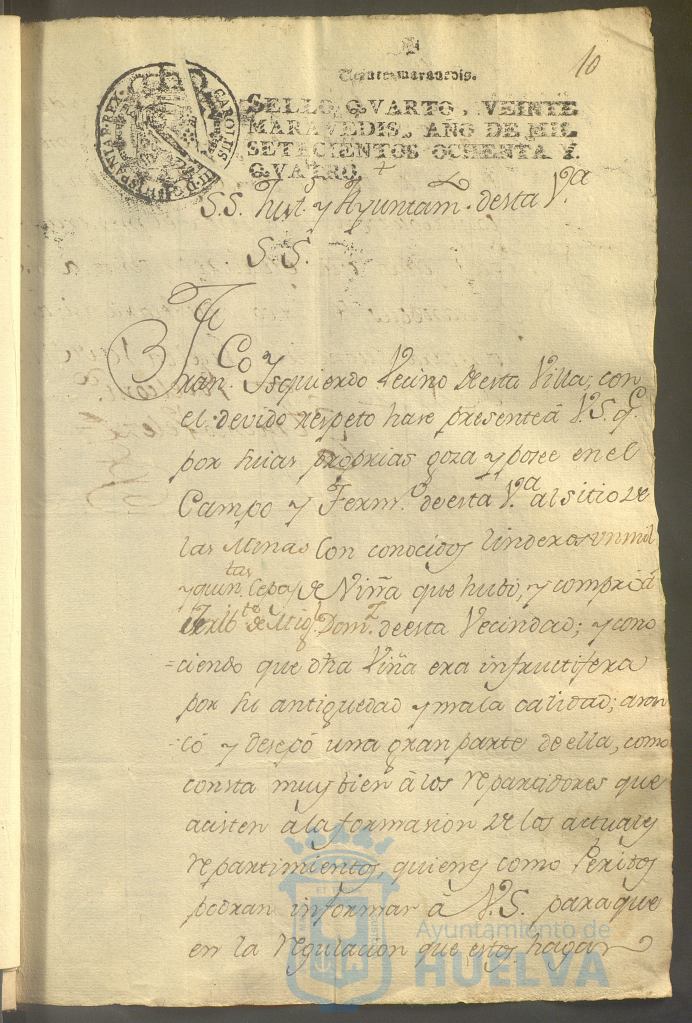 10
Veinte maravedis.
SELLO QVARTO, VEINTE
MARAVEDIS, AÑO DE MIL
SETECIENTOS OCHENTA Y
QVATRO.
CAROLUS III D G HISPANIAR REX
S.S. Just. y Ayuntam. desta V.ª
S. S.
Fran.co Ysquierdo Vecino de esta Villa; con
el devido respeto hase presente á V.S. q.e
por suias proprias goza y posee en el
Campo y Term.o de esta V.a al sitio de
las Minas Con conocidos linderos un mil
y quin.tas Cepas de Viña que hubo, y compró á
de Mig.l Dom.z de esta Vecindad; y cono
=ciendo que dha Viña era infructifera
por su antiguedad y mala calidad; aran
-có y desepó una gran parte de ella, como
consta muy bien á los repartidores que
acisten á la formasion de los actuales
repartimientos, quienes como Peritos
podran informar á V.S. para que
en la regulacion que estos hagan
Ayuntamiento de
HUELVA